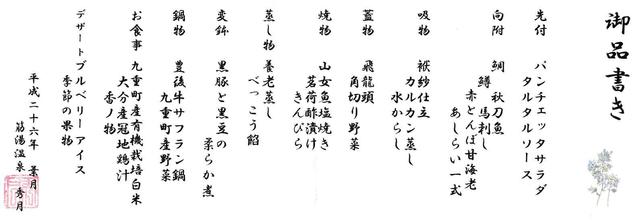 御品書き
先付　パンチェッタサラダ
タルタルソース
向附　鯛　秋刀魚
鱒　馬刺し
赤とんぼ甘海老
あしらい一式
吸物　袱紗仕立
カルカン蒸し
水からし
蓋物　飛龍頭
角切り野菜
焼物　山女魚塩焼き
茗荷酢漬け
きんぴら
蒸し物　養老蒸し
べっこう餡
変鉢　黒豚と黒豆の
柔らか煮
鍋物　豊後牛サフラン鍋
九重町産野菜
お食事　九重町産有機栽培白米
大分産冠地鶏汁
香ノ物
デザート　ブルーベリーアイス
季節の果物
平成二十六年　葉月
筋湯温泉　秀月